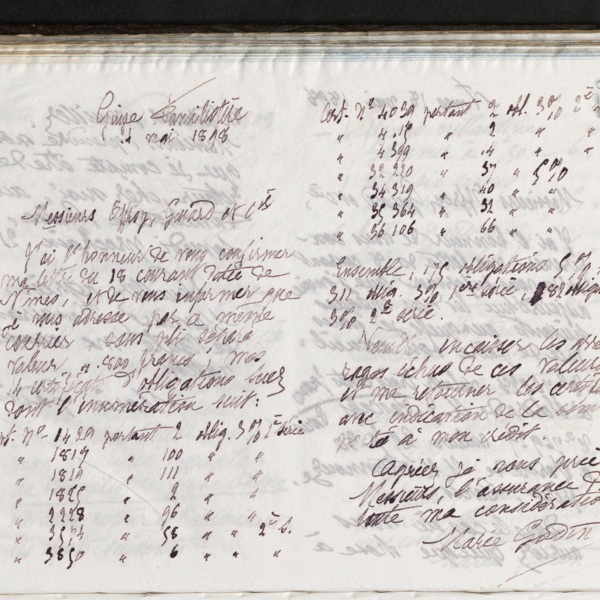 Guise Familistère
mai 1898
Messieurs Offroy, Guiard et Cie
J'ai l'honneur de vous confirmer
ma lettre du 18 courant datée de
Nîmes, et de vous informer que
je vous adresse par ce même
courrier sous pli déposé
valeur 800 francs, mes
14 certificats d'obligations
dont l'énumération suit :
Cert. No 1429 portant 2 oblig. 3% 1e série
" 1817 " 100 " "
" 1819 " 111 " "
" 1825 " 2 " "
" 2228 " 96 " "
" 3574 " 58 " " 2e s.
" 3850 " 6 " "
Cert. No 4039 portant 2 obl. 3% 2e
" " 2 " "
" 4399 " 14 " "
" 32220 " 37 " 5%
" 34319 " 40 " "
" 35364 " 32 " "
" 36106 " 66 " "
Ensemble, 175 obligations 5%
311 oblig. 3% 1ere série, 82 oblig
3% 2e série.
Veuillez encaisser les arré
rages échus de ces valeurs
et me retourner les certi
avec indication de la
à mon crédit
Agréez je vous prie
Messieurs, l'assurance de
toute ma considération
Marie Godin